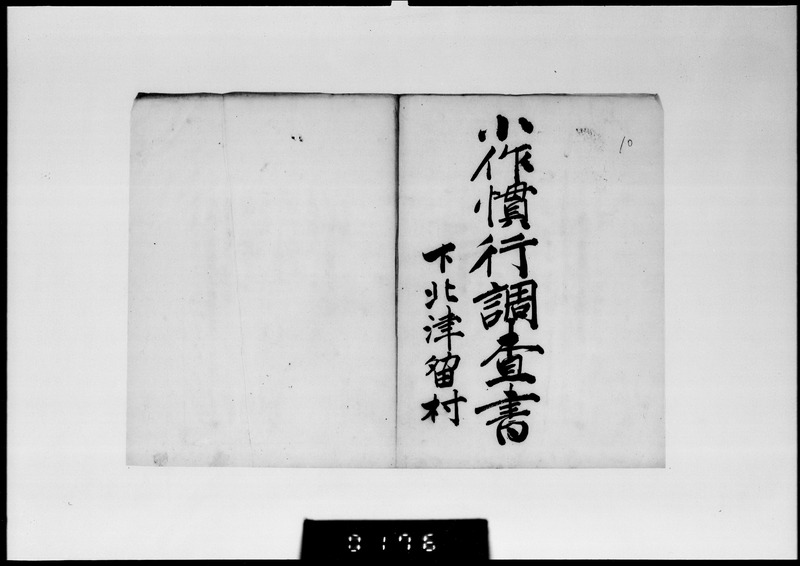 10
小作慣行調査書
下北津留村
0176